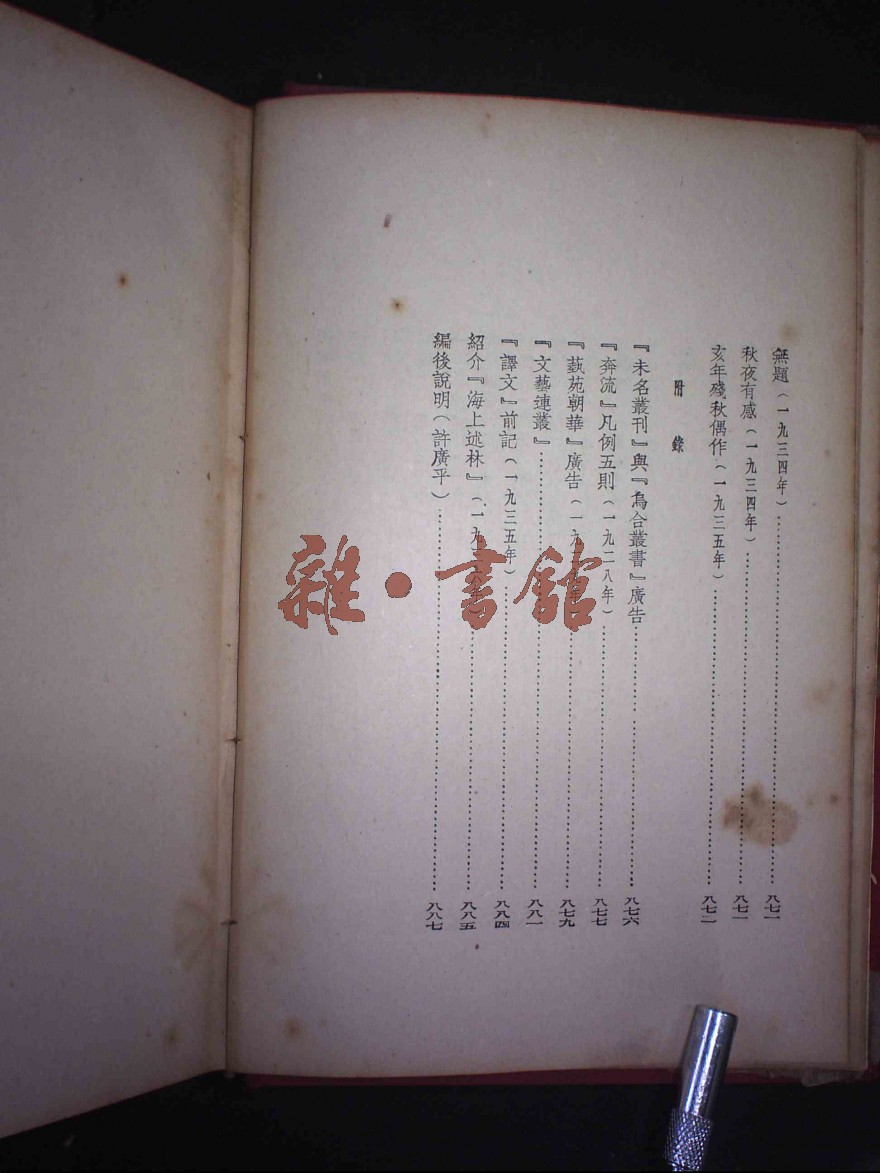 無題（一九三四年）……八七一
秋夜有感（一九三四年）……八七一
亥年殘秋偶作（一九三五年）……八七二
附錄
『未名叢刊』與『烏合叢書』廣告……八七六
『奔流』凡例五則（一九二八年）……八七七
『藝苑朝華』廣告（一九……八七九
『文藝連叢』……八八一
『譯文』前記（一九三五年）……八八四
紹介『海上述林』（一九……八八五
編後說明（許廣平）……八八七
雜·書館